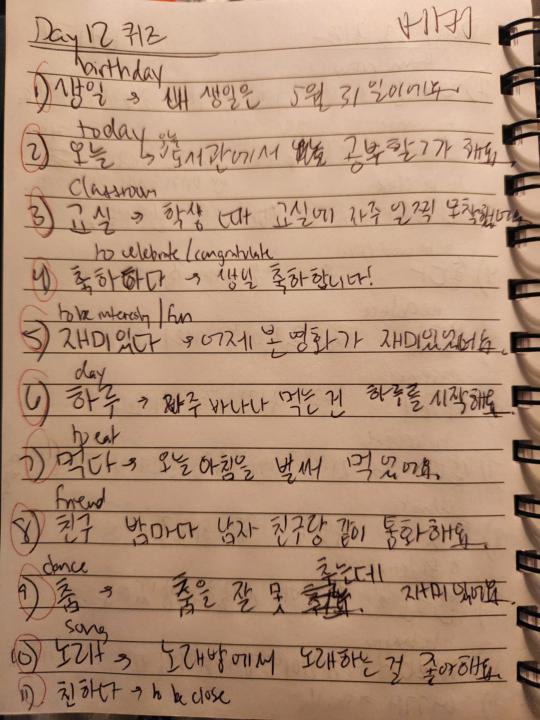 Day 12 퀴즈
birthday
1) 생일 → 내 생일은 5월 31일이에요.
today
오늘
2) 오늘 → 도서관에서 공부할 거가 해요.
classroom
3) 교실 → 학생 때 교실에 자주 일찍
to celebrate/congratulate
4) 축하하다 → 생일 축하합니다!
to be interesting/fun
5) 재미있다 → 어제 본 영화가 재미있었어요.
day
6) 하루 → 바나나 먹는 건 하루를 시작해요.
to eat
7) 먹다 → 오늘 아침을 벌써 먹었어요.
friend
8) 친구 밤마다 남자 친구랑 같이 통화해요.
dance
추는데
9) 춤 → 춤을 잘 못 재미있어요.
song
10) 노래 → 노래방에서 노래하는 걸 좋아해요.
11) 친하다 → to be close